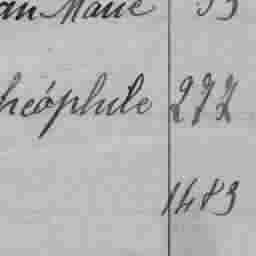 an Marie 53
héophile 272
1483